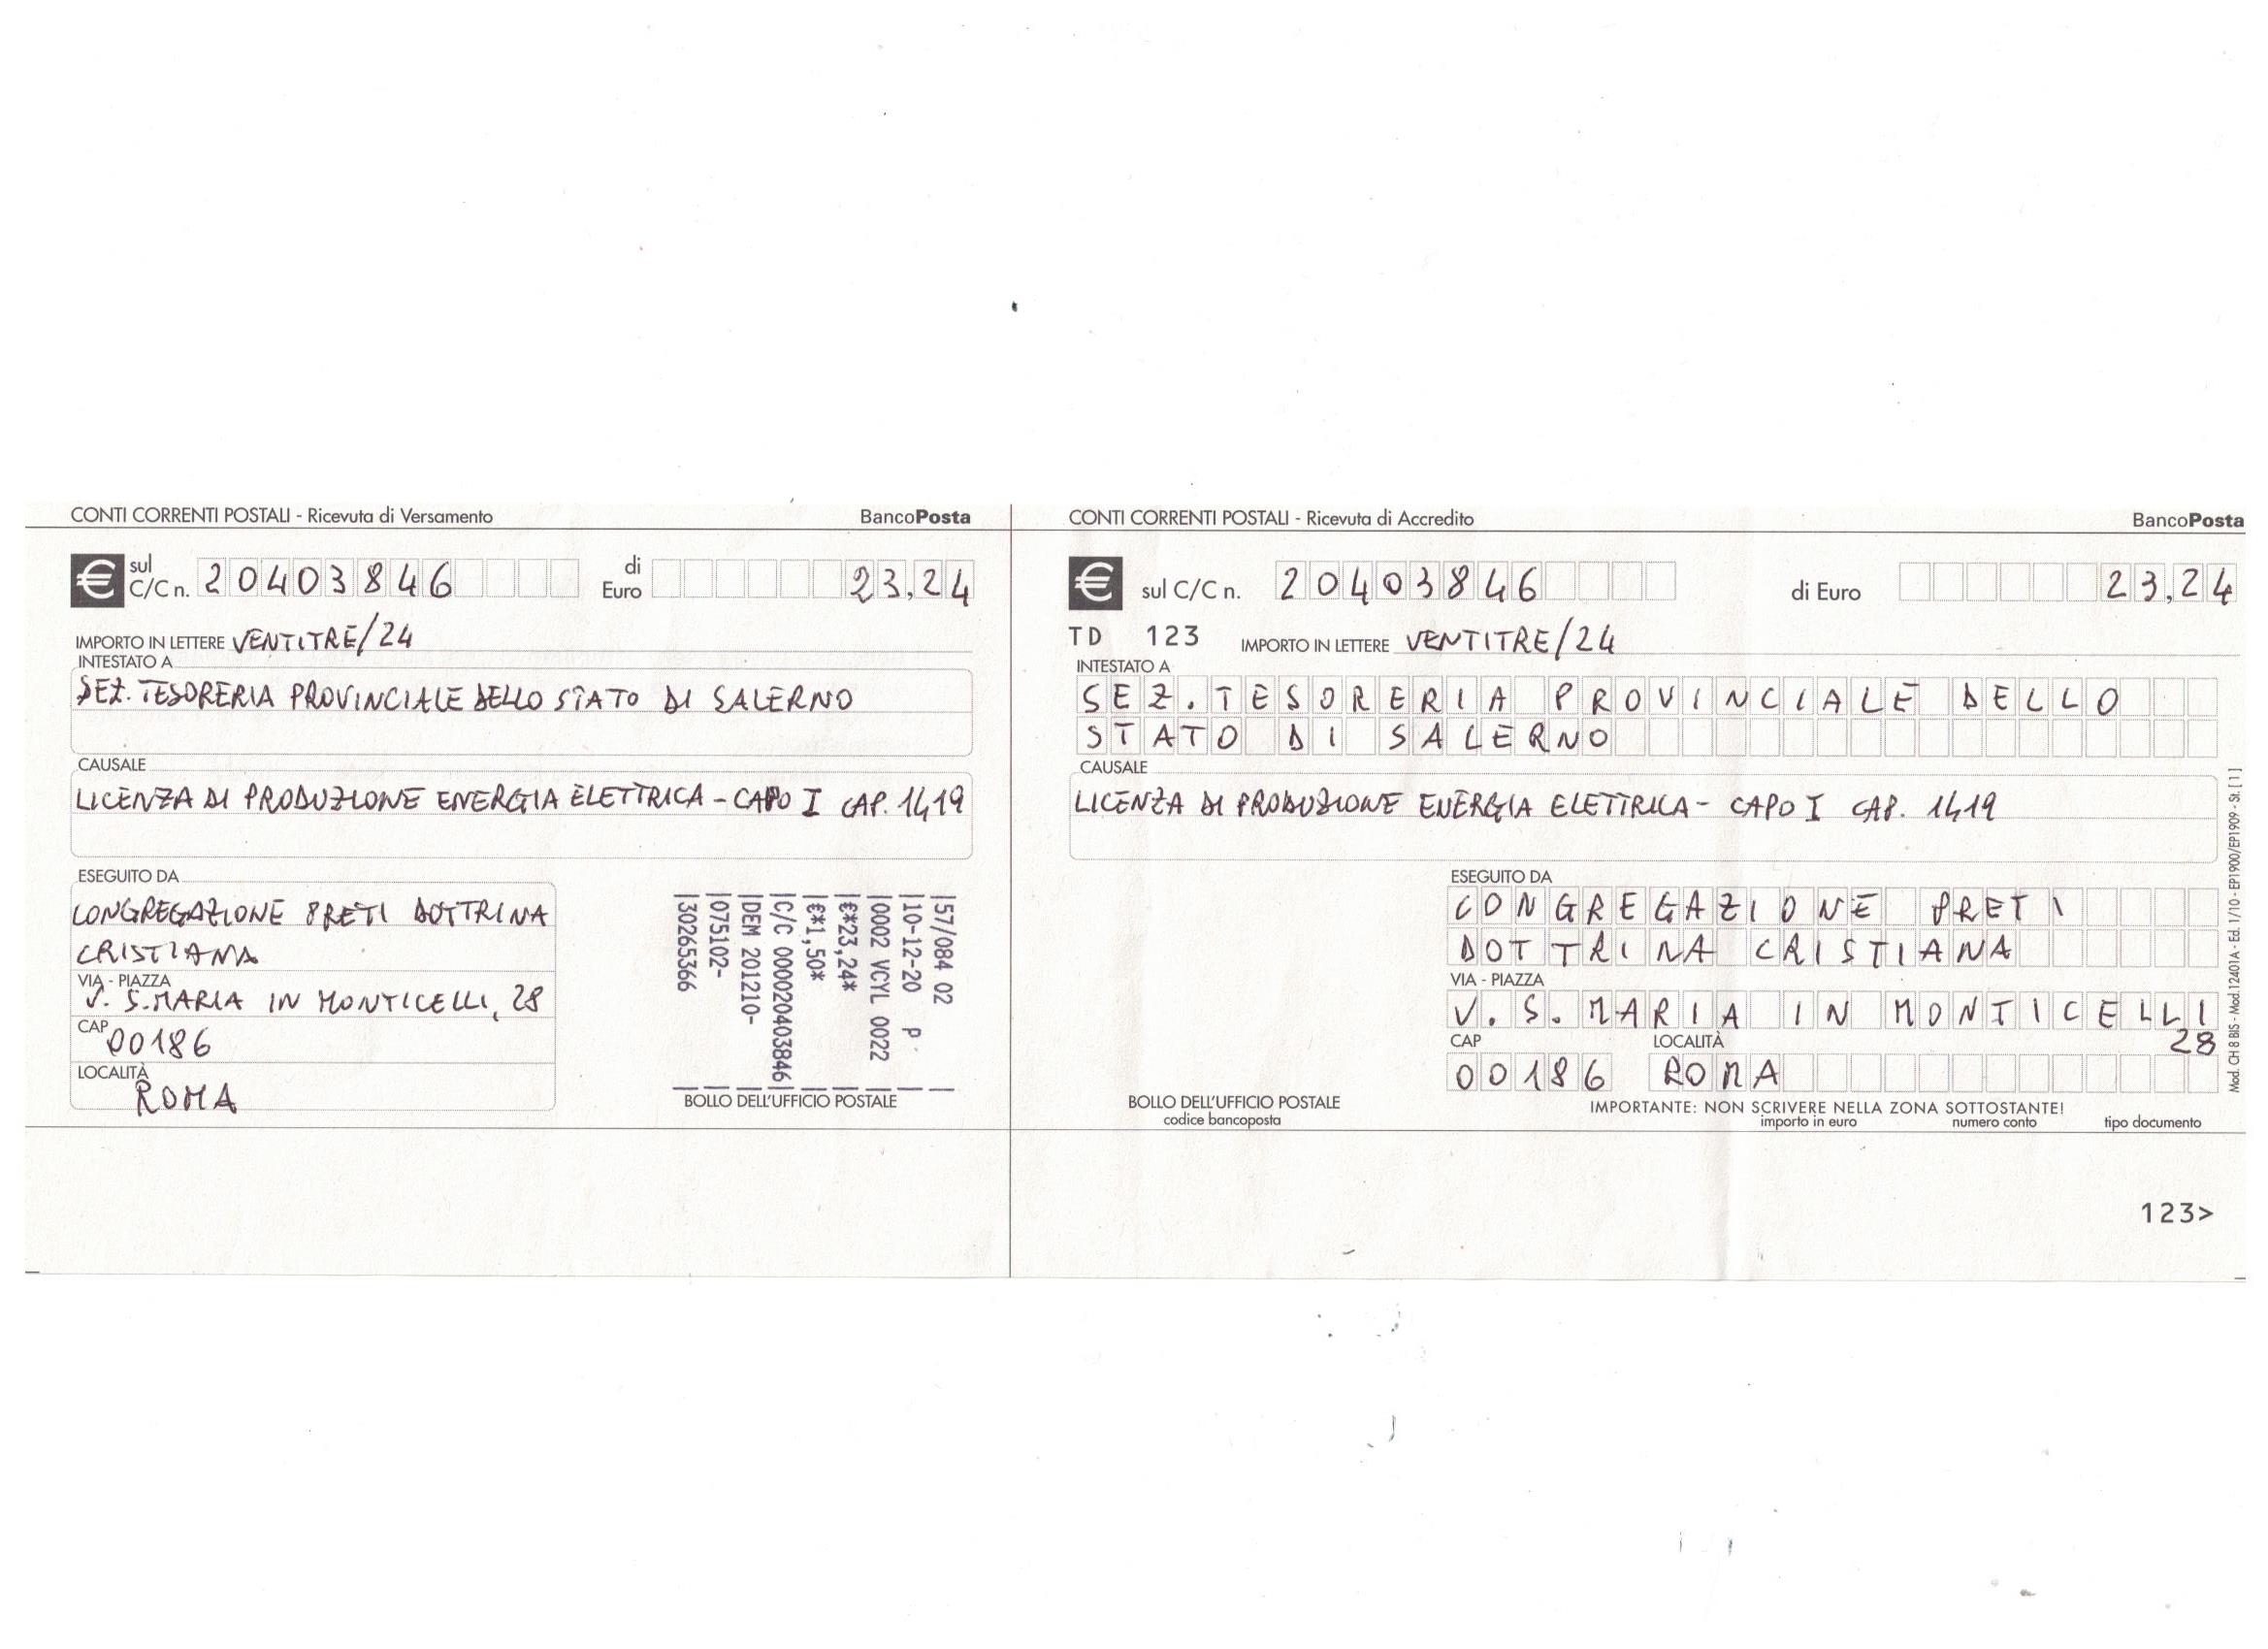 CONTI CORRENTI POSTALI - Ricevuta di Versamento BancoPosta
€ sul C/C n. 20403846 di Euro 23,24
IMPORTO IN LETTERE VENTITRE/24
INTESTATO A
SEZ. TESORERIA PROVINCIALE DELLO STATO DI SALERNO
CAUSALE
LICENZA DI PRODUZIONE ENERGIA ELETTRICA - CAPO I CAP. 1419
ESEGUITO DA
CONGREGAZIONE PRETI DOTTRINA
CRISTIANA
VIA - PIAZZA
V. S.MARIA IN MONTICELLI, 28
CAP
00186
LOCALITÀ
ROMA
57/084 02
10-12-20 P
0002 VCYL 0022
€*23,24*
€*1,50*
C/C 000020403846
DEM 201210-
075102-
30265366
BOLLO DELL'UFFICIO POSTALE
CONTI CORRENTI POSTALI - Ricevuta di Accredito BancoPosta
€ sul C/C n. 20403846 di Euro 23,24
TD 123 IMPORTO IN LETTERE VENTITRE/24
INTESTATO A
SEZ. TESORERIA PROVINCIALE DELLO
STATO DI SALERNO
CAUSALE
LICENZA DI PRODUZIONE ENERGIA ELETTRICA - CAPO I CAP. 1419
ESEGUITO DA
CONGREGAZIONE PRETI
DOTTRINA CRISTIANA
VIA - PIAZZA
V. S. MARIA IN MONTICELLI
28
CAP LOCALITÀ
00186 ROMA
BOLLO DELL'UFFICIO POSTALE
codice bancoposta
IMPORTANTE: NON SCRIVERE NELLA ZONA SOTTOSTANTE!
importo in euro numero conto tipo documento
123>
Mod. CH 8 BIS - Mod.12401A - Ed. 1/10 - EP1900/EP1909 - St. [1]